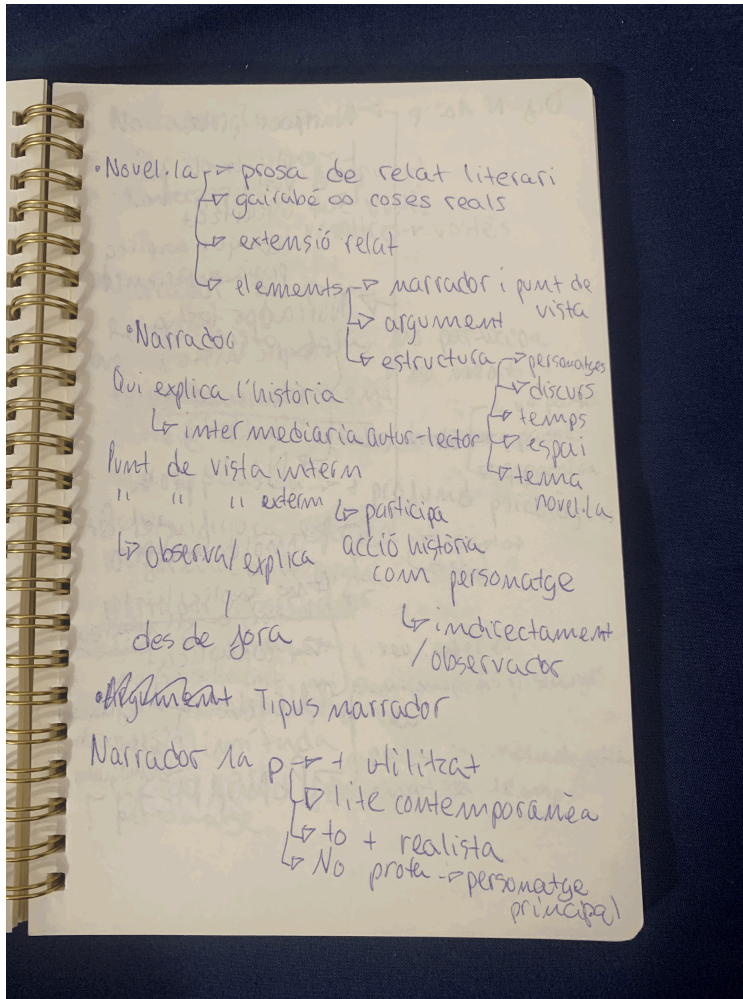 • Novel·la → prosa de relat literari
→ gairabé ∞ coses reals
→ extensió relat
→ elements → narrador i punt de vista
→ argument
→ estructura → personatges
→ discurs
→ temps
→ espai
→ tema novel·la
• Narrador
Qui explica l'història
↳ intermediaria autor-lector
Punt de vista intern
" " " extern ↳ participa
acció història
com personatge
↳ indirectament
/ observador
↳ observa/explica
/
des de fora
• Argument Tipus narrador
Narrador 1a p → + utilitzat
→ lite contemporanèa
→ to + realista
→ No prota → personatge
principal